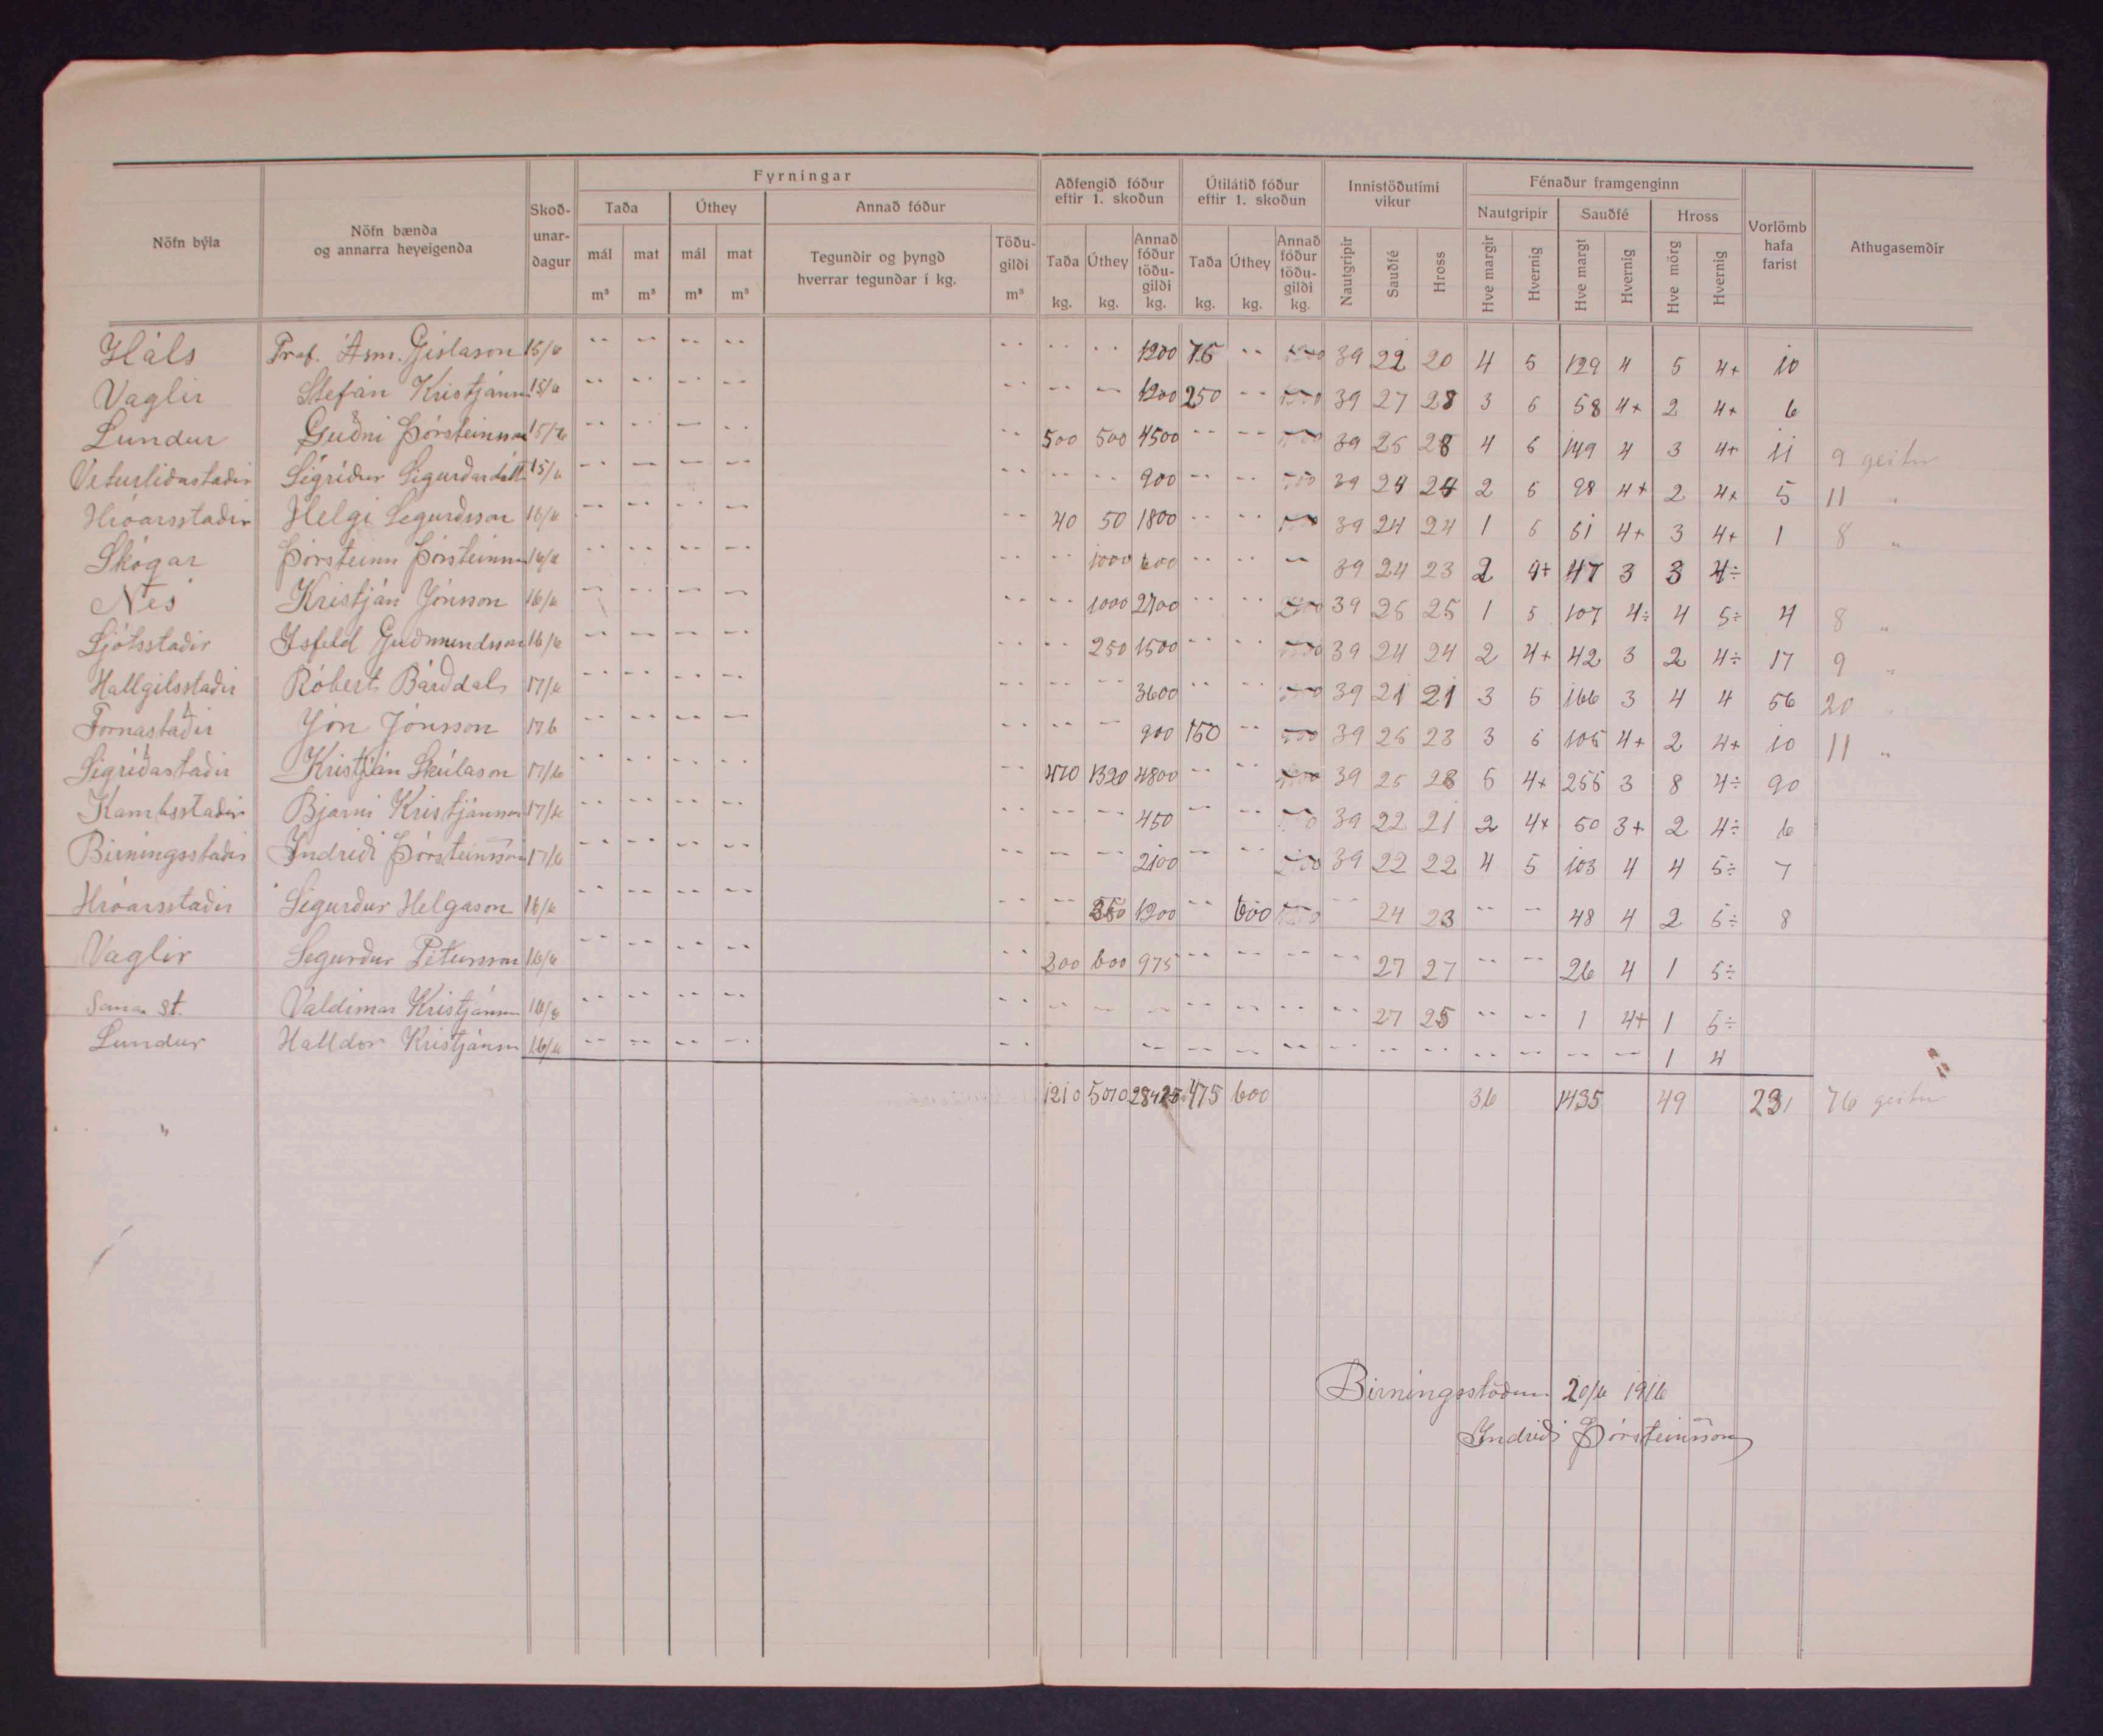 Fyrningar
Aðfengið fóður eftir 1. skoðun
Útilátið fóður eftir 1. skoðun
Innistöðutími vikur
Fénaður framgenginn
Nöfn býla
Nöfn bænda og annarra heyeigenda
Skoð-unar-dagur
Taða
Úthey
Annað fóður
Nautgripir
Sauðfé
Hross
Vorlömb hafa farist
Athugasemdir
mál m³ mat m³ mál m³ mat m³
Tegundir og þyngd hverrar tegundar í kg.
Töðu-gildi m³
Taða kg. Úthey kg. Annað fóður töðu-gildi kg.
Taða kg. Úthey kg. Annað fóður töðu-gildi kg.
Nautgripir Sauðfé Hross
Hve margir Hvernig Hve margt Hvernig Hve mörg Hvernig
Háls Prof. Ásm. Gíslason 15/6 -- -- -- -- -- -- -- 1200 75 -- 39 22 20 4 5 129 4 5 4+ 10
Vaglir Stefán Kristjánss 15/6 -- -- -- -- -- -- -- 1200 250 -- 39 27 28 3 5 58 4+ 2 4+ 6
Lundur Guðni Þórsteinsson 15/6 -- -- -- -- -- 500 500 4500 -- -- 39 25 28 4 5 149 4 3 4+ 11 9 geitur
Veturliðastaðir Sigríður Sigurðardótt 15/6 -- -- -- -- -- -- -- 900 -- -- 39 24 24 2 5 98 4+ 2 4+ 5 11 "
Hróarsstaðir Helgi Sigurðsson 16/6 -- -- -- -- -- 40 50 1800 -- -- 39 24 24 1 5 51 4+ 3 4+ 1 8 "
Skógar Þórsteinn Þórsteinss 16/6 -- -- -- -- -- -- 1000 600 -- -- -- 39 24 23 2 4+ 47 3 3 4÷
Nes Kristján Jónsson 16/6 -- -- -- -- -- -- 1000 2700 -- -- 39 25 25 1 5 107 4÷ 4 5÷ 4 8 "
Ljótsstaðir Ísfeld Guðmundsson 16/6 -- -- -- -- -- -- 250 1500 -- -- 39 24 24 2 4+ 42 3 2 4÷ 17 9 "
Hallgilsstaðir Róbert Bárðdal 17/6 -- -- -- -- -- -- -- 3600 -- -- 39 21 21 3 5 166 3 4 4 56 20 "
Fornastaðir Jón Jónsson 17/6 -- -- -- -- -- -- -- 900 150 -- 39 25 23 3 5 105 4+ 2 4+ 10 11 "
Sigríðastaðir Kristján Skúlason 17/6 -- -- -- -- -- 470 1320 4800 -- -- 39 25 28 5 4+ 255 3 8 4÷ 90
Kambsstaðir Bjarni Kristjánsson 17/6 -- -- -- -- -- -- -- 450 -- -- 39 22 21 2 4+ 50 3+ 2 4÷ 6
Birningsstaðir Indriði Þórsteinsson 17/6 -- -- -- -- -- -- -- 2100 -- -- 39 22 22 4 5 103 4 4 5÷ 7
Hróarsstaðir Sigurður Helgason 16/6 -- -- -- -- -- -- 350 1200 -- 600 -- 24 23 -- -- 48 4 2 5÷ 8
Vaglir Sigurður Pétursson 16/6 -- -- -- -- -- 200 600 975 -- -- -- -- 27 27 -- -- 26 4 1 5÷
Sama st. Valdimar Kristjánss 16/6 -- -- -- -- -- -- -- -- -- -- -- -- 27 25 -- -- 1 4+ 1 5÷
Lundur Halldór Kristjánss 16/6 -- -- -- -- -- -- -- -- -- -- -- -- -- -- -- -- 1 4
1210 5070 28425 475 600 36 1435 49 231 76 geitur
Birningsstöðum 20/6 1916
Indriði Þórsteinsson